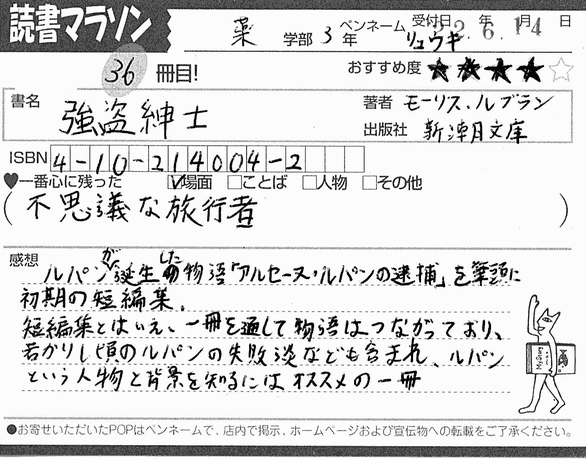 読書マラソン
薬 学部 3年 ペンネーム リュウキ 受付日 22年6月14日
36 冊目!
おすすめ度 ★★★★☆
書名 強盗紳士
著者 モーリス・ルブラン
出版社 新潮文庫
ISBN 4-10-214004-2
♥一番心に残った ☑場面 □ことば □人物 □その他
(不思議な旅行者)
感想
ルパンが誕生した物語「アルセーヌ・ルパンの逮捕」を筆頭に
初期の短編集。
短編集とはいえ、一冊を通して物語はつながっており、
若かりし頃のルパンの失敗談なども含まれ、ルパン
という人物と背景を知るにはオススメの一冊
●お寄せいただいたPOPはペンネームで、店内で掲示、ホームページおよび宣伝物への転載をご了承ください。